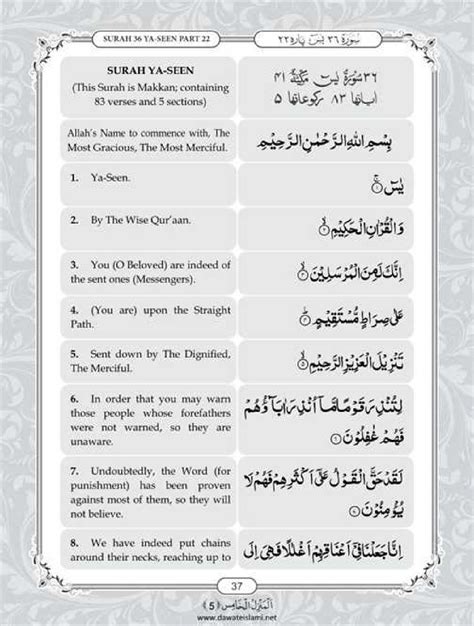 SURAH 36 YA-SEEN PART 22
سورة ٣٦ يٰسٓ پاره ٢٢
SURAH YA-SEEN
(This Surah is Makkan; containing
83 verses and 5 sections)
٣٦ سُوْرَةُ يٰسٓ مَكِّيَّةٌ ٤١
اٰياتها ٨٣ ركوعاتها ٥
Allah's Name to commence with, The
Most Gracious, The Most Merciful.
بِسْمِ اللهِ الرَّحْمٰنِ الرَّحِيْمِ
1. Ya-Seen.
يٰسٓ ۚ﴿۱﴾
2. By The Wise Qur'aan.
وَ الْقُرْاٰنِ الْحَكِيْمِ ۙ﴿۲﴾
3. You (O Beloved) are indeed of
the sent ones (Messengers).
اِنَّكَ لَمِنَ الْمُرْسَلِيْنَ ۙ﴿۳﴾
4. (You are) upon the Straight
Path.
عَلٰى صِرَاطٍ مُّسْتَقِيْمٍ ؕ﴿۴﴾
5. Sent down by The Dignified,
The Merciful.
تَنْزِيْلَ الْعَزِيْزِ الرَّحِيْمِ ۙ﴿۵﴾
6. In order that you may warn
those people whose forefathers
were not warned, so they are
unaware.
لِتُنْذِرَ قَوْمًا مَّاۤ اُنْذِرَ اٰبَآؤُهُمْ
فَهُمْ غٰفِلُوْنَ ﴿۶﴾
7. Undoubtedly, the Word (for
punishment) has been proven
against most of them, so they will
not believe.
لَقَدْ حَقَّ الْقَوْلُ عَلٰۤى اَكْثَرِهِمْ فَهُمْ لَا
يُؤْمِنُوْنَ ﴿۷﴾
8. We have indeed put chains
around their necks, reaching up to
اِنَّا جَعَلْنَا فِيْۤ اَعْنَاقِهِمْ اَغْلٰلًا فَهِيَ اِلَى
37
اَلْمَنْزِلُ الْخَامِس ﴿5﴾
www.dawateislami.net